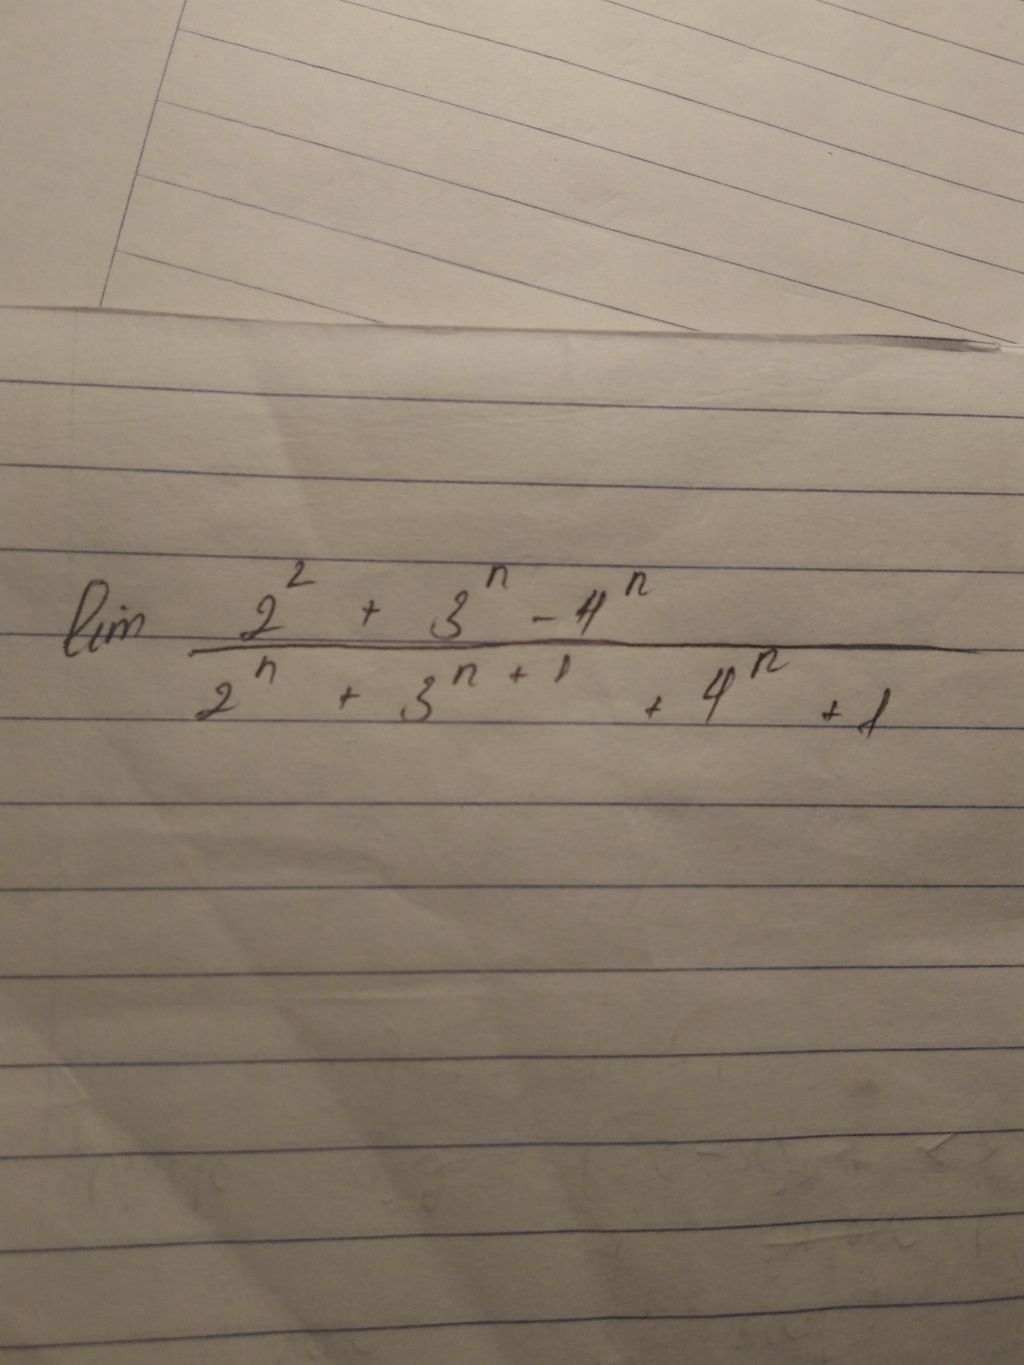 lim 2² + 3ⁿ - 4ⁿ
2ⁿ + 3ⁿ⁺¹ + 4ⁿ + 1